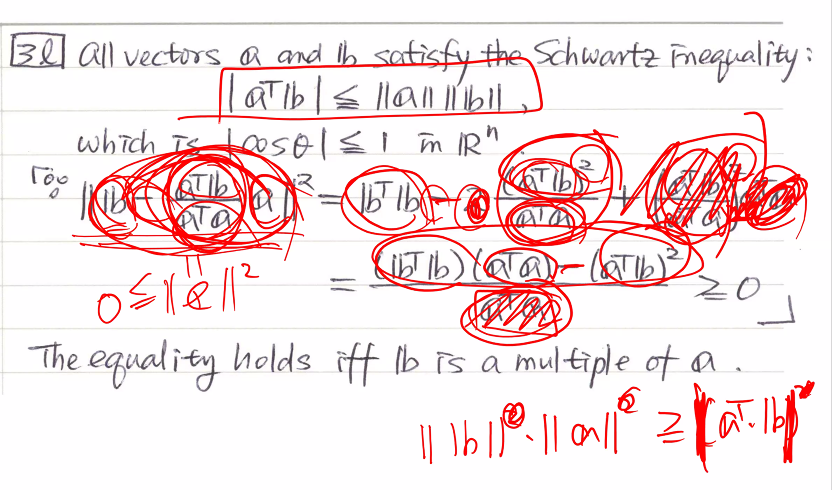 3l All vectors a and b satisfy the Schwartz inequality:
|aᵀb| ≤ ||a|| ||b||,
which is |cosθ| ≤ 1 in ℝⁿ.
||b - (aᵀb)/(aᵀa) a||² = bᵀb - 2 (aᵀb)²/(aᵀa) +
= ((bᵀb)(aᵀa) - (aᵀb)²)/(aᵀa) ≥ 0
0 ≤ ||e||²
The equality holds iff b is a multiple of a.
||b||² · ||a||² ≥ |aᵀ·b|²